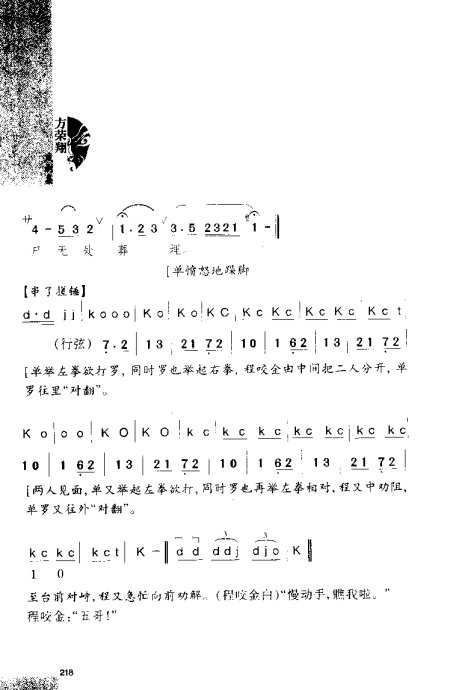 方荣翔
廾 4 - 5 3 2 ∨ | 1 · 2 3 ∨ 3 · 5 2321 1 - ‖
尸 无 处 葬 埋。
[单愤怒地跺脚
【串子搓锤】
d · d jj | kooo | Ko | Ko | KC | Kc Kc | Kc Kc | Kc Kc t
(行弦) 7 · 2 | 13 | 21 72 | 10 | 1 62 | 13 | 21 72
[单举左拳欲打罗, 同时罗也举起右拳, 程咬金由中间把二人分开, 单
罗往里“对翻”。
Ko | oo | KO | KO | kc | kc kc | kc kc | kc kc | kc kc
10 | 1 62 | 13 | 21 72 | 10 | 1 62 | 13 | 21 72
[两人见面, 单又举起左拳欲打, 同时罗也再举左拳相对, 程又中劝阻,
单罗又往外“对翻”。
kc kc | kct | K - ‖ d d ddj djo K ‖
1 0
至台前对峙, 程又急忙向前劝解。(程咬金白)“慢动手, 瞧我啦。”
程咬金: “五哥!”
218